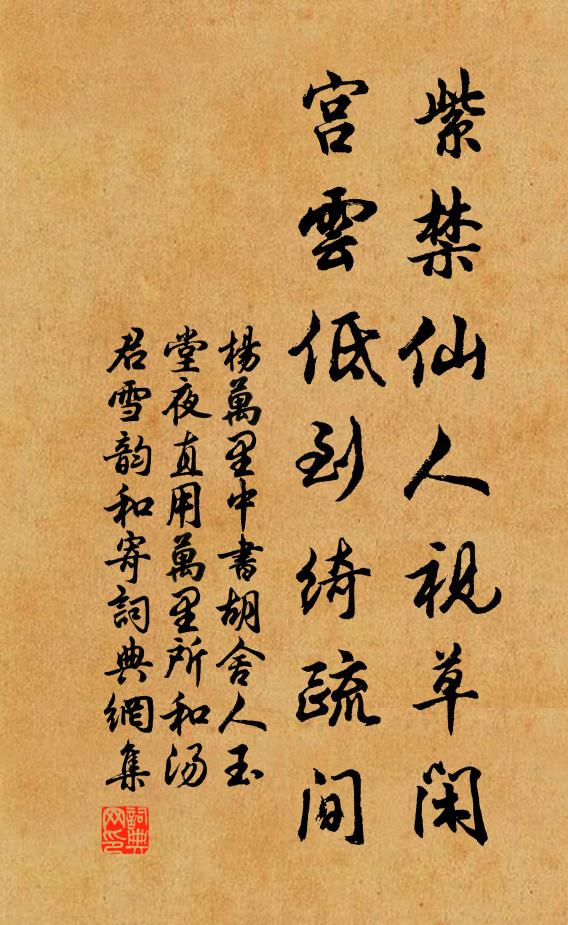 紫禁仙人視草閑
宮雲低到綺疏间
楊萬里中書胡舍人玉
堂夜直用萬里所和湯
君雪韵和寄詞典網集
詞典网印